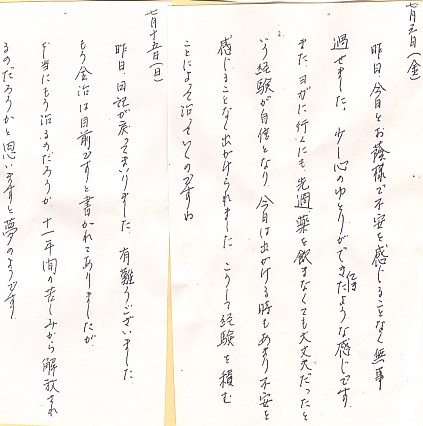 七月元日(金)
昨日、今日とお蔭様で不安を感じることなく無事
過せました。少し心のゆとりができたような感じです。
また、ヨガに行くにも、先週薬を飲まなくても大丈夫だったと
いう経験が自信となり、今日は出かける時もあまり不安を
感じることなく出かけられました。こうして経験を積む
ことによって治っていくのですね
七月十五日(日)
昨日、日記が戻ってまいりました。有難うございました
もう全治は目前ですと書かれてありましたが
本当にもう治るのだろうか 十一年間の苦しみから解放され
るのだろうかと思いますと夢のようです。